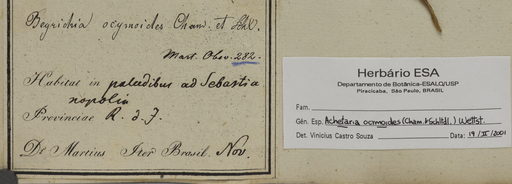 Begrichia ocymoides Cham. et Schl.
Mart. Obs. 282.
Habitat in paludibus ad Sebastia
nopolin
Provinciae R. d. J.
Dr Martius Iter Brasil. Nov.
Herbário ESA
Departamento de Botânica-ESALQ/USP
Piracicaba, São Paulo, BRASIL
Fam.
Gên. Esp. Achetaria ocymoides (Cham. & Schltdl.) Wettst.
Det. Vinicius Castro Souza Data: 19/II/2001